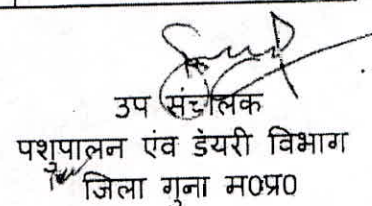 उप संचालक
पशुपालन एंव डेयरी विभाग
जिला गुना म0प्र0